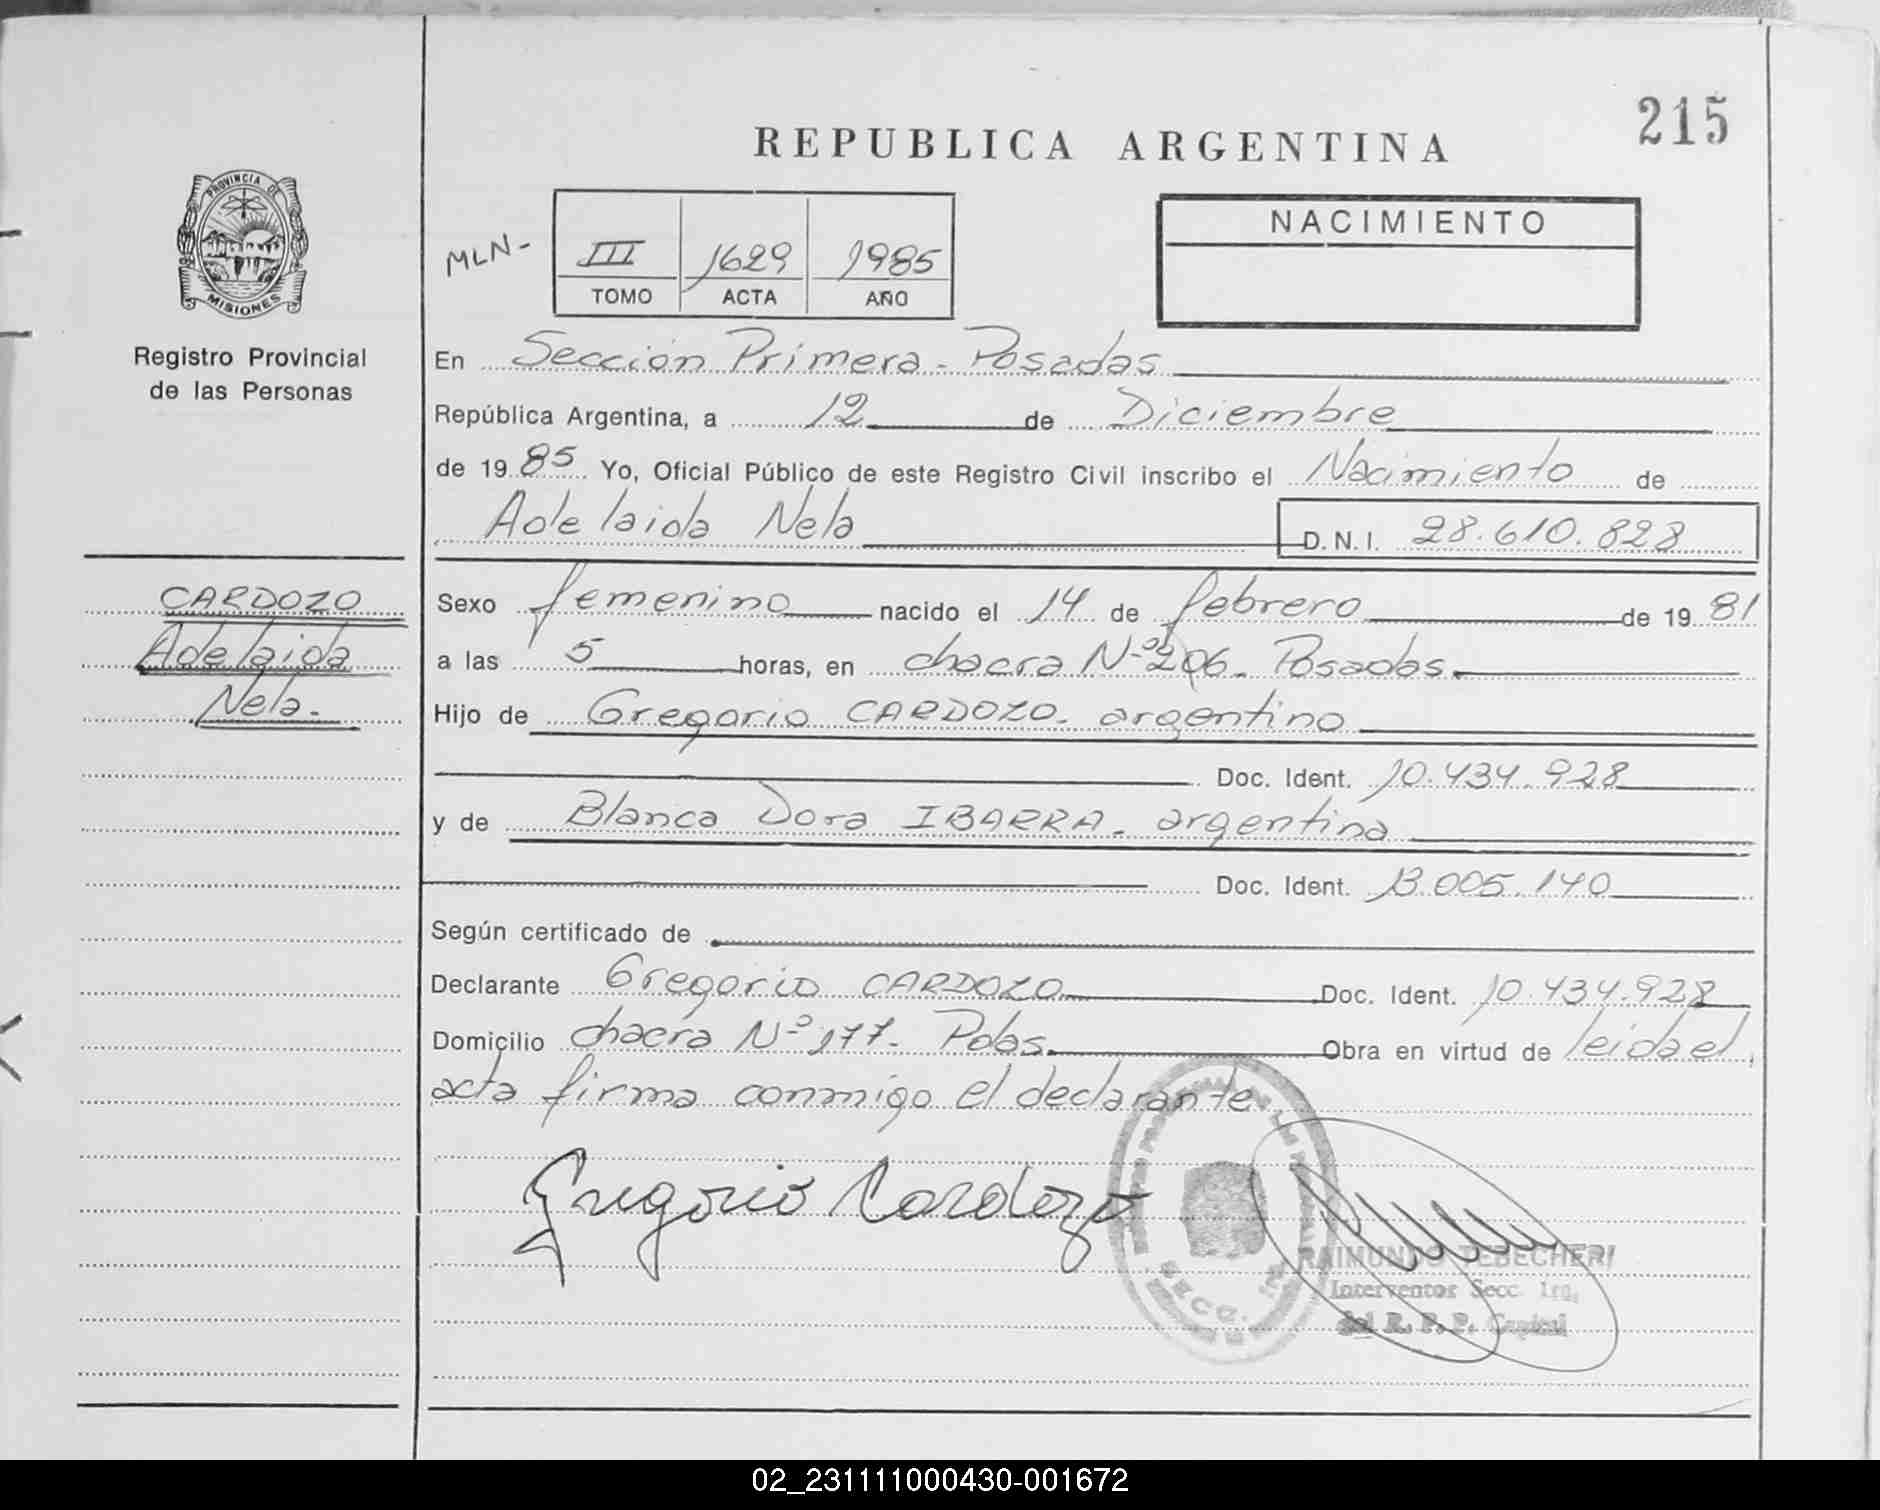 215
REPUBLICA ARGENTINA
PROVINCIA DE
MISIONES
Registro Provincial
de las Personas
MLN-
III 1629 1985
TOMO ACTA AÑO
NACIMIENTO
En Sección Primera - Posadas
República Argentina, a 12 de Diciembre
de 19 85 Yo, Oficial Público de este Registro Civil inscribo el Nacimiento de
Adelaida Nela D.N.I. 28.610.828
CARDOZO
Adelaida
Nela.-
Sexo femenino nacido el 14 de febrero de 19 81
a las 5 horas, en chacra Nº 206. Posadas.
Hijo de Gregorio CARDOZO. argentino
Doc. Ident. 10.434.928
y de Blanca Dora IBARRA. argentina
Doc. Ident. 13.005.140
Según certificado de
Declarante Gregorio CARDOZO Doc. Ident. 10.434.928
Domicilio chacra Nº 177. Pdas. Obra en virtud de leida el
acta firma conmigo el declarante
Gregorio Cardozo
SECC.
RAIMUNDO TEBECHERI
Interventor Secc. 1ra.
del R. P. P. Capital
02_231111000430-001672